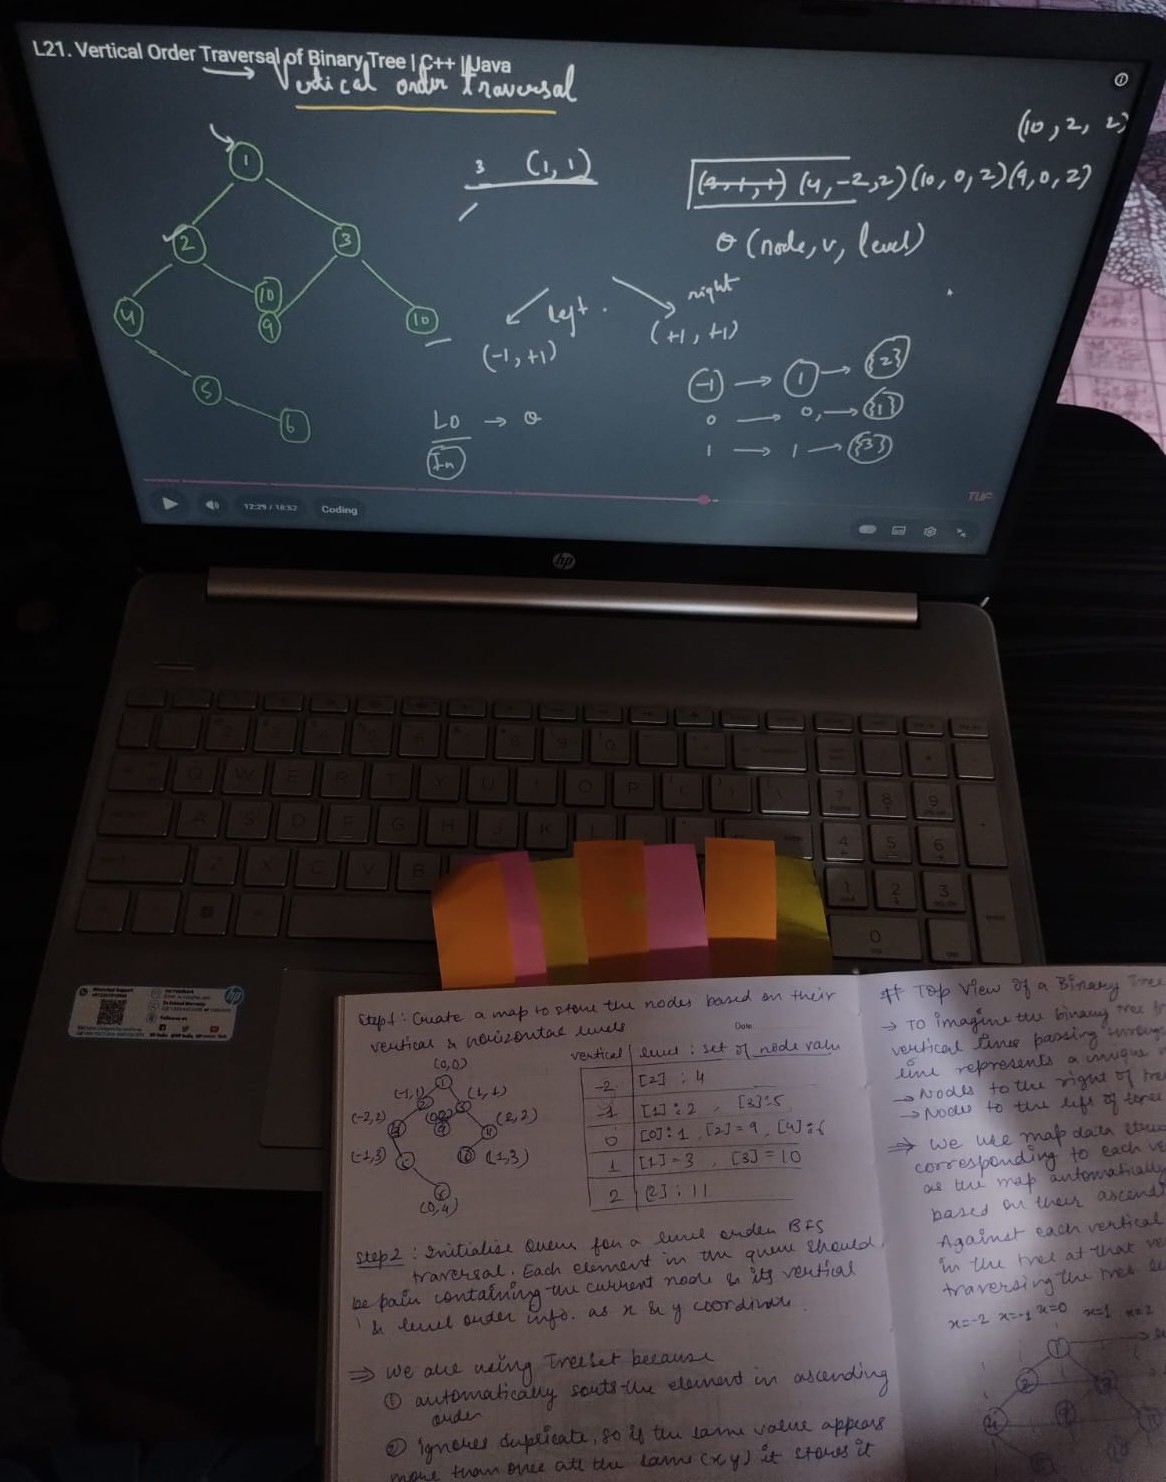 L21. Vertical Order Traversal of Binary Tree | C++ | Java
→ Vertical order Traversal
(10, 2, 2)
1
2
3
4
10
9
10
5
6
3 (1, 1)
(4, -2, 2) (10, 0, 2) (9, 0, 2)
(node, v, level)
left
right
(-1, +1)
(+1, +1)
LO →
In
-1 → 1 → {2}
0 → 0, → {1}
1 → 1 → {3}
TUF
12:29 / 18:52
Coding
hp
Step1: Create a map to store the nodes based on their
vertical & horizontal levels
Date
(0,0)
(-1,1) (1,1)
(-2,2) (2,2)
(-1,3) (1,3)
(0,4)
vertical | level : set of node valu
-2 | [2] : 4
-1 | [1] : 2 , [3] : 5
0 | [0] : 1 , [2] = 9 , [4] : 6
1 | [1] - 3 , [3] = 10
2 | [2] : 11
Step2 : Initialise Queue for a level order BFS
traversal. Each element in the queue should
be pair containing the current node & its vertical
& level order info. as x & y coordinate.
⇒ we are using TreeSet because
① automatically sorts the element in ascending
order
② Ignores duplicate, so if the same value appears
more than once att the same (x y) it stores it
# Top View of a Binary Tree
→ To imagine the binary tree
vertical lines passing through
line represents a unique
→ Nodes to the right of
→ Nodes to the left of
⇒ we use map data
corresponding to each
as the map automatically
based on their ascend
Against each vertical
in the tree at that
traversing the tree
x=-2 x=-1 x=0 x=1 x=2